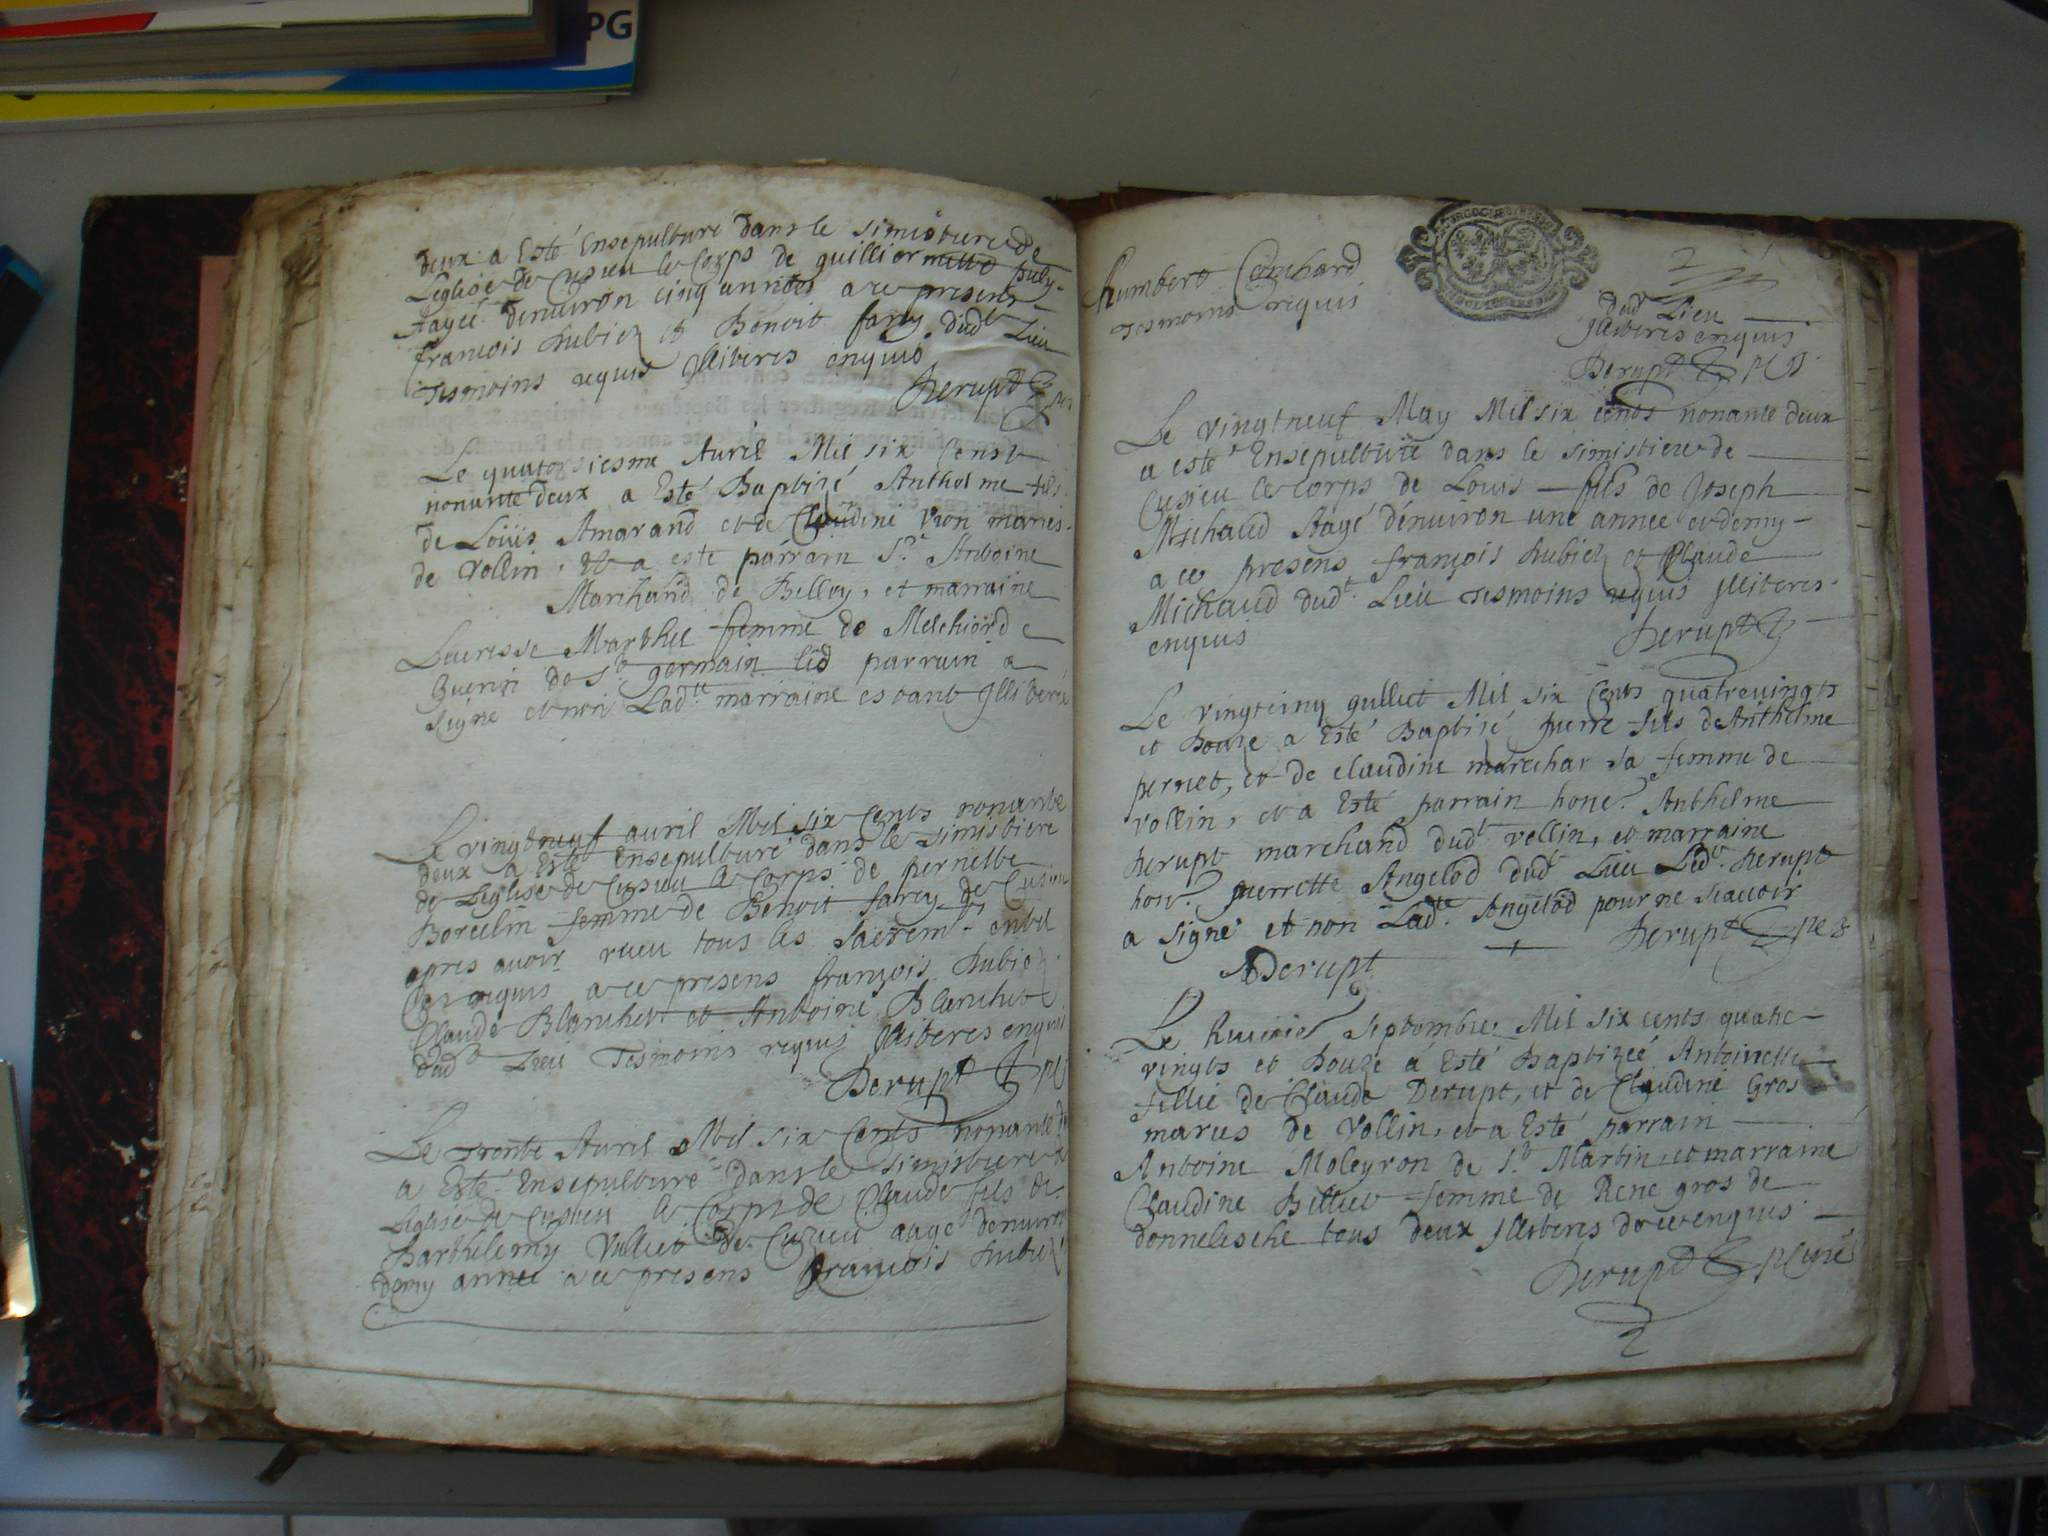 PG
deux a Esté Ensepulturé dans le simistiere de
Leglise de Cusieu le Corps de guilliermette
Aagée denuiron cinq années a ce presens
françois hubiez et Benoit farcy dud.t Lieu
Tesmoins requis Illiteres enquis
Derupt
Le quatorsiesme Auril Mil six Cents
nonante deux a Esté Baptizé Anthelme fils
de Loüis Amarand et de Claudine Vion maries
de Vollin, Et a esté parrain S.r Antoine
Marchand de Belley, et marraine
Lucresse Marthel femme de Melchiord
Guerin de S.t germain led parrain a
signé et non Lad.te marraine estant Illiteré
Le vingtneuf auril Mil six Cents nonante
deux a Esté Ensepulturé dans le simistiere
de Leglise de Cusieu le Corps de pernette
Borcelin femme de Benoit farcy de Cusieu
apres auoir receu tous les sacrem.ts
requis a ce presens françois hubiez
Claude Blanchet et Antoine Blanchet
dud.t Lieu Tesmoins requis Illiteres enquis
Derupt
Le Trente Auril Mil six Cents nonante
a Esté Ensepulturé dans le simistiere de
Leglise de Cusieu le Corps de Claude fils de
Barthelemy Volliet de Cuzieu aagé denuiron
demy année a ce presens françois hubiez
humbert
Tesmoins requis
2
dud.t Lieu
Illiteres enquis
Derupt
Le vingtneuf May Mil six Cents nonante deux
a esté Ensepulturé dans le simistiere de
Cusieu le Corps de Louis fils de Joseph
Michaud Aagé denuiron une annee et demy
a ce presens françois hubiez et Claude
Michaud dud.t Lieu Tesmoins requis Illiteres
enquis
Derupt
Le vingtcinq Jullict Mil six Cents quatrevingts
et Douze a Esté Baptizé pierre fils de Anthelme
pernet, et de claudine marechar sa femme de
vollin, et a Esté parrain hone.r Anthelme
Derupt marchand dud.t vollin, et marraine
hon.r pierrette Angelod dud.t Lieu Led.t Derupt
a signé et non Lad.te Angelod pour ne scauoir
Derupt
ADerupt
Le septembre Mil six cents quatre
vingts et Douze a Esté Baptizeé Antoinette
fillie de Claude Derupt, et de Claudine Gros
maries de Vollin, et a Esté parrain
Antoine Moleyron de S.t Martin et marraine
Claudine Billiet femme de Rene gros de
donnelische tous deux Illiteres de ce enquis
Derupt
2